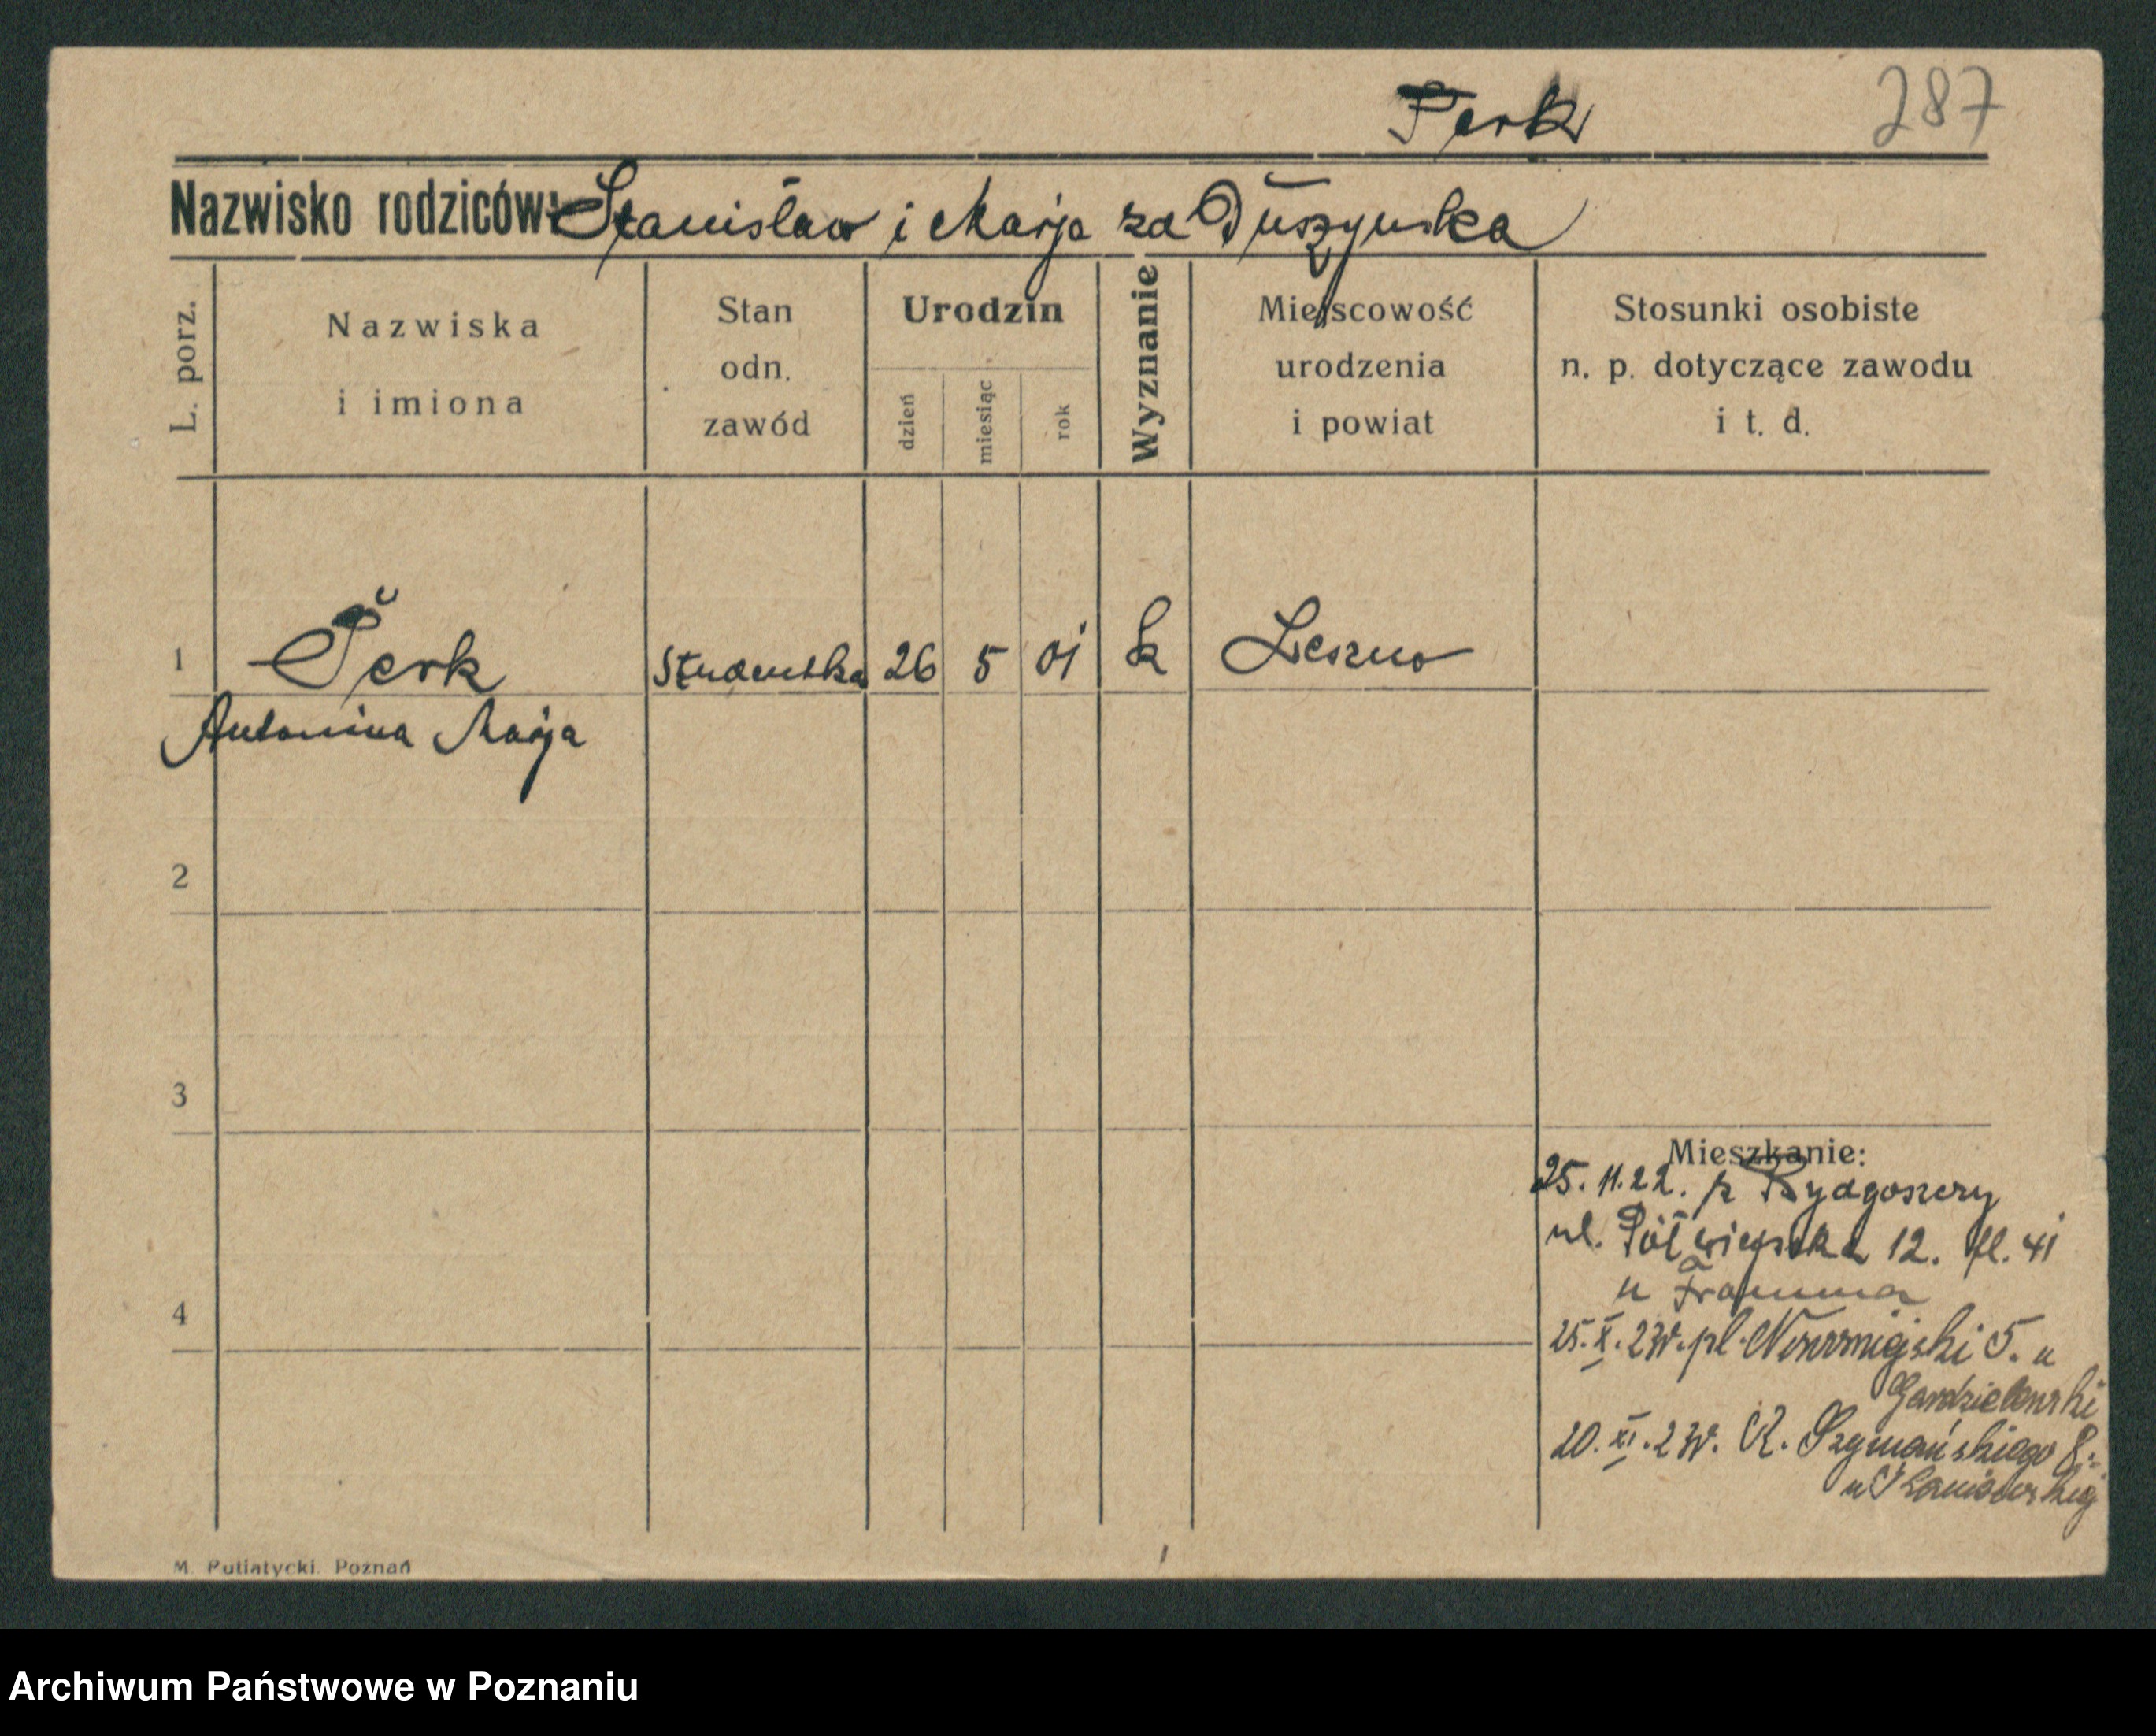 Ferk 287
Nazwisko rodziców: Stanisław i Marja za Duszyńska
L. porz.
Nazwiska
i imiona
Stan
odn.
zawód
Urodzin
dzień
miesiąc
rok
Wyznanie
Miejscowość
urodzenia
i powiat
Stosunki osobiste
n. p. dotyczące zawodu
i t. d.
1 Studentka 26 5 01 k Leszno
Antonina Marja
2
3
Mieszkanie:
25.11.22. z Bydgoszczy
ul. Półwiejska 12. 41
u
4
25.X.23r. pl. Nowomiejski 5. u
20.XI.23r. R. Szymańskiego 8.
u
M. Putiatycki. Poznań
Archiwum Państwowe w Poznaniu